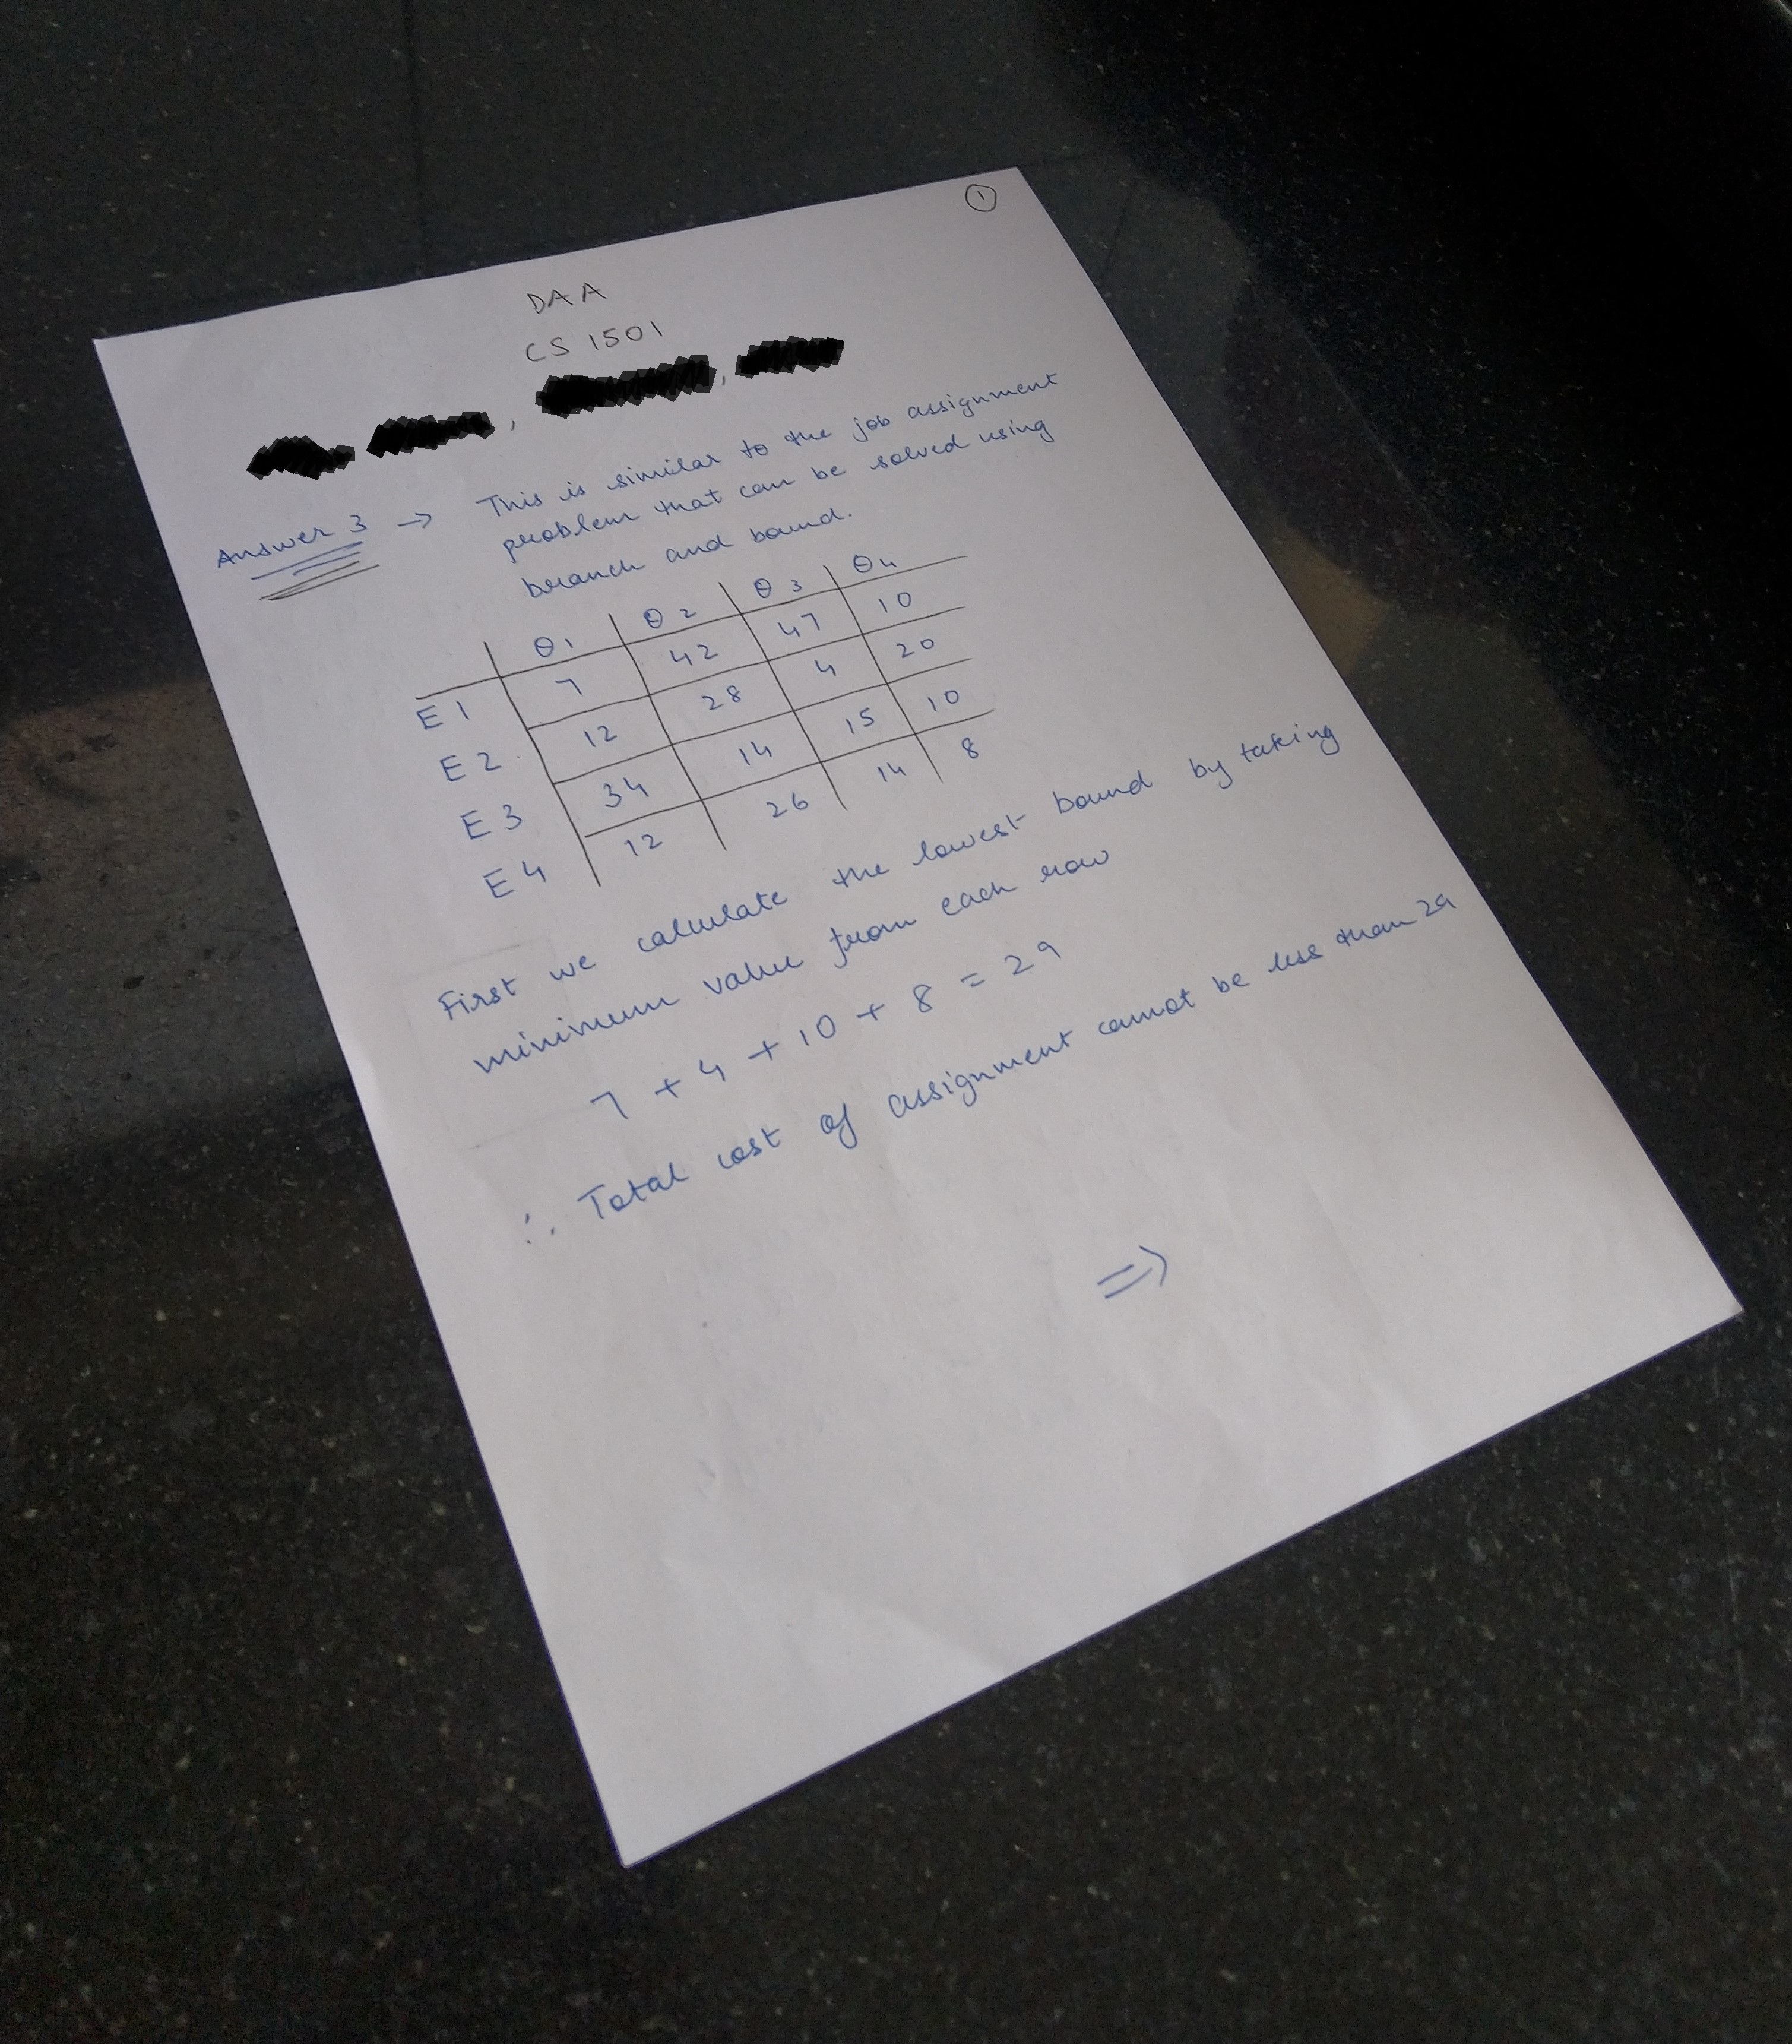 1
DAA
CS 1501
, ,
Answer 3 → This is similar to the job assignment
problem that can be solved using
branch and bound.
θ1 θ2 θ3 θ4
E1 7 42 47 10
E2 12 28 4 20
E3 34 14 15 10
E4 12 26 14 8
First we calculate the lowest bound by taking
minimum value from each row
7 + 4 + 10 + 8 = 29
∴ Total cost of assignment cannot be less than 29
⇒